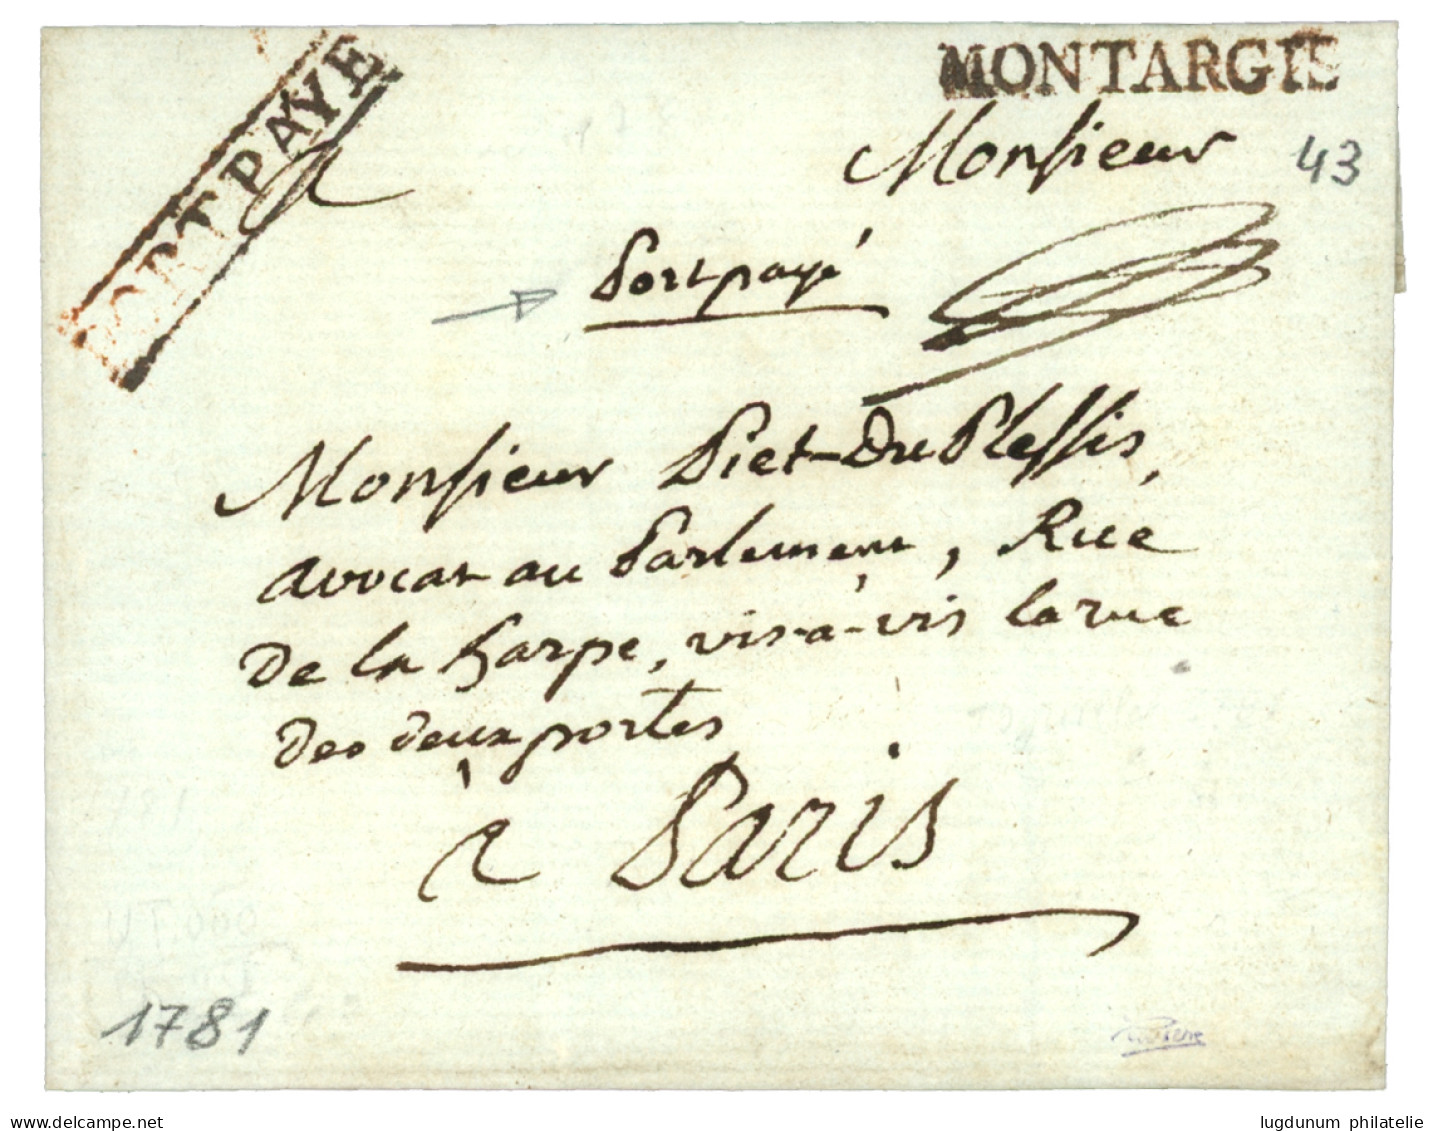 PORT PAYE
MONTARGIS
Monsieur
43
Port payé
Monsieur Piet-Du Plessis,
avocat au Parlement, Rue
De la harpe, vis-à-vis la rue
des deux portes
à Paris
1781
delcampe.net
lugdunum philatelie